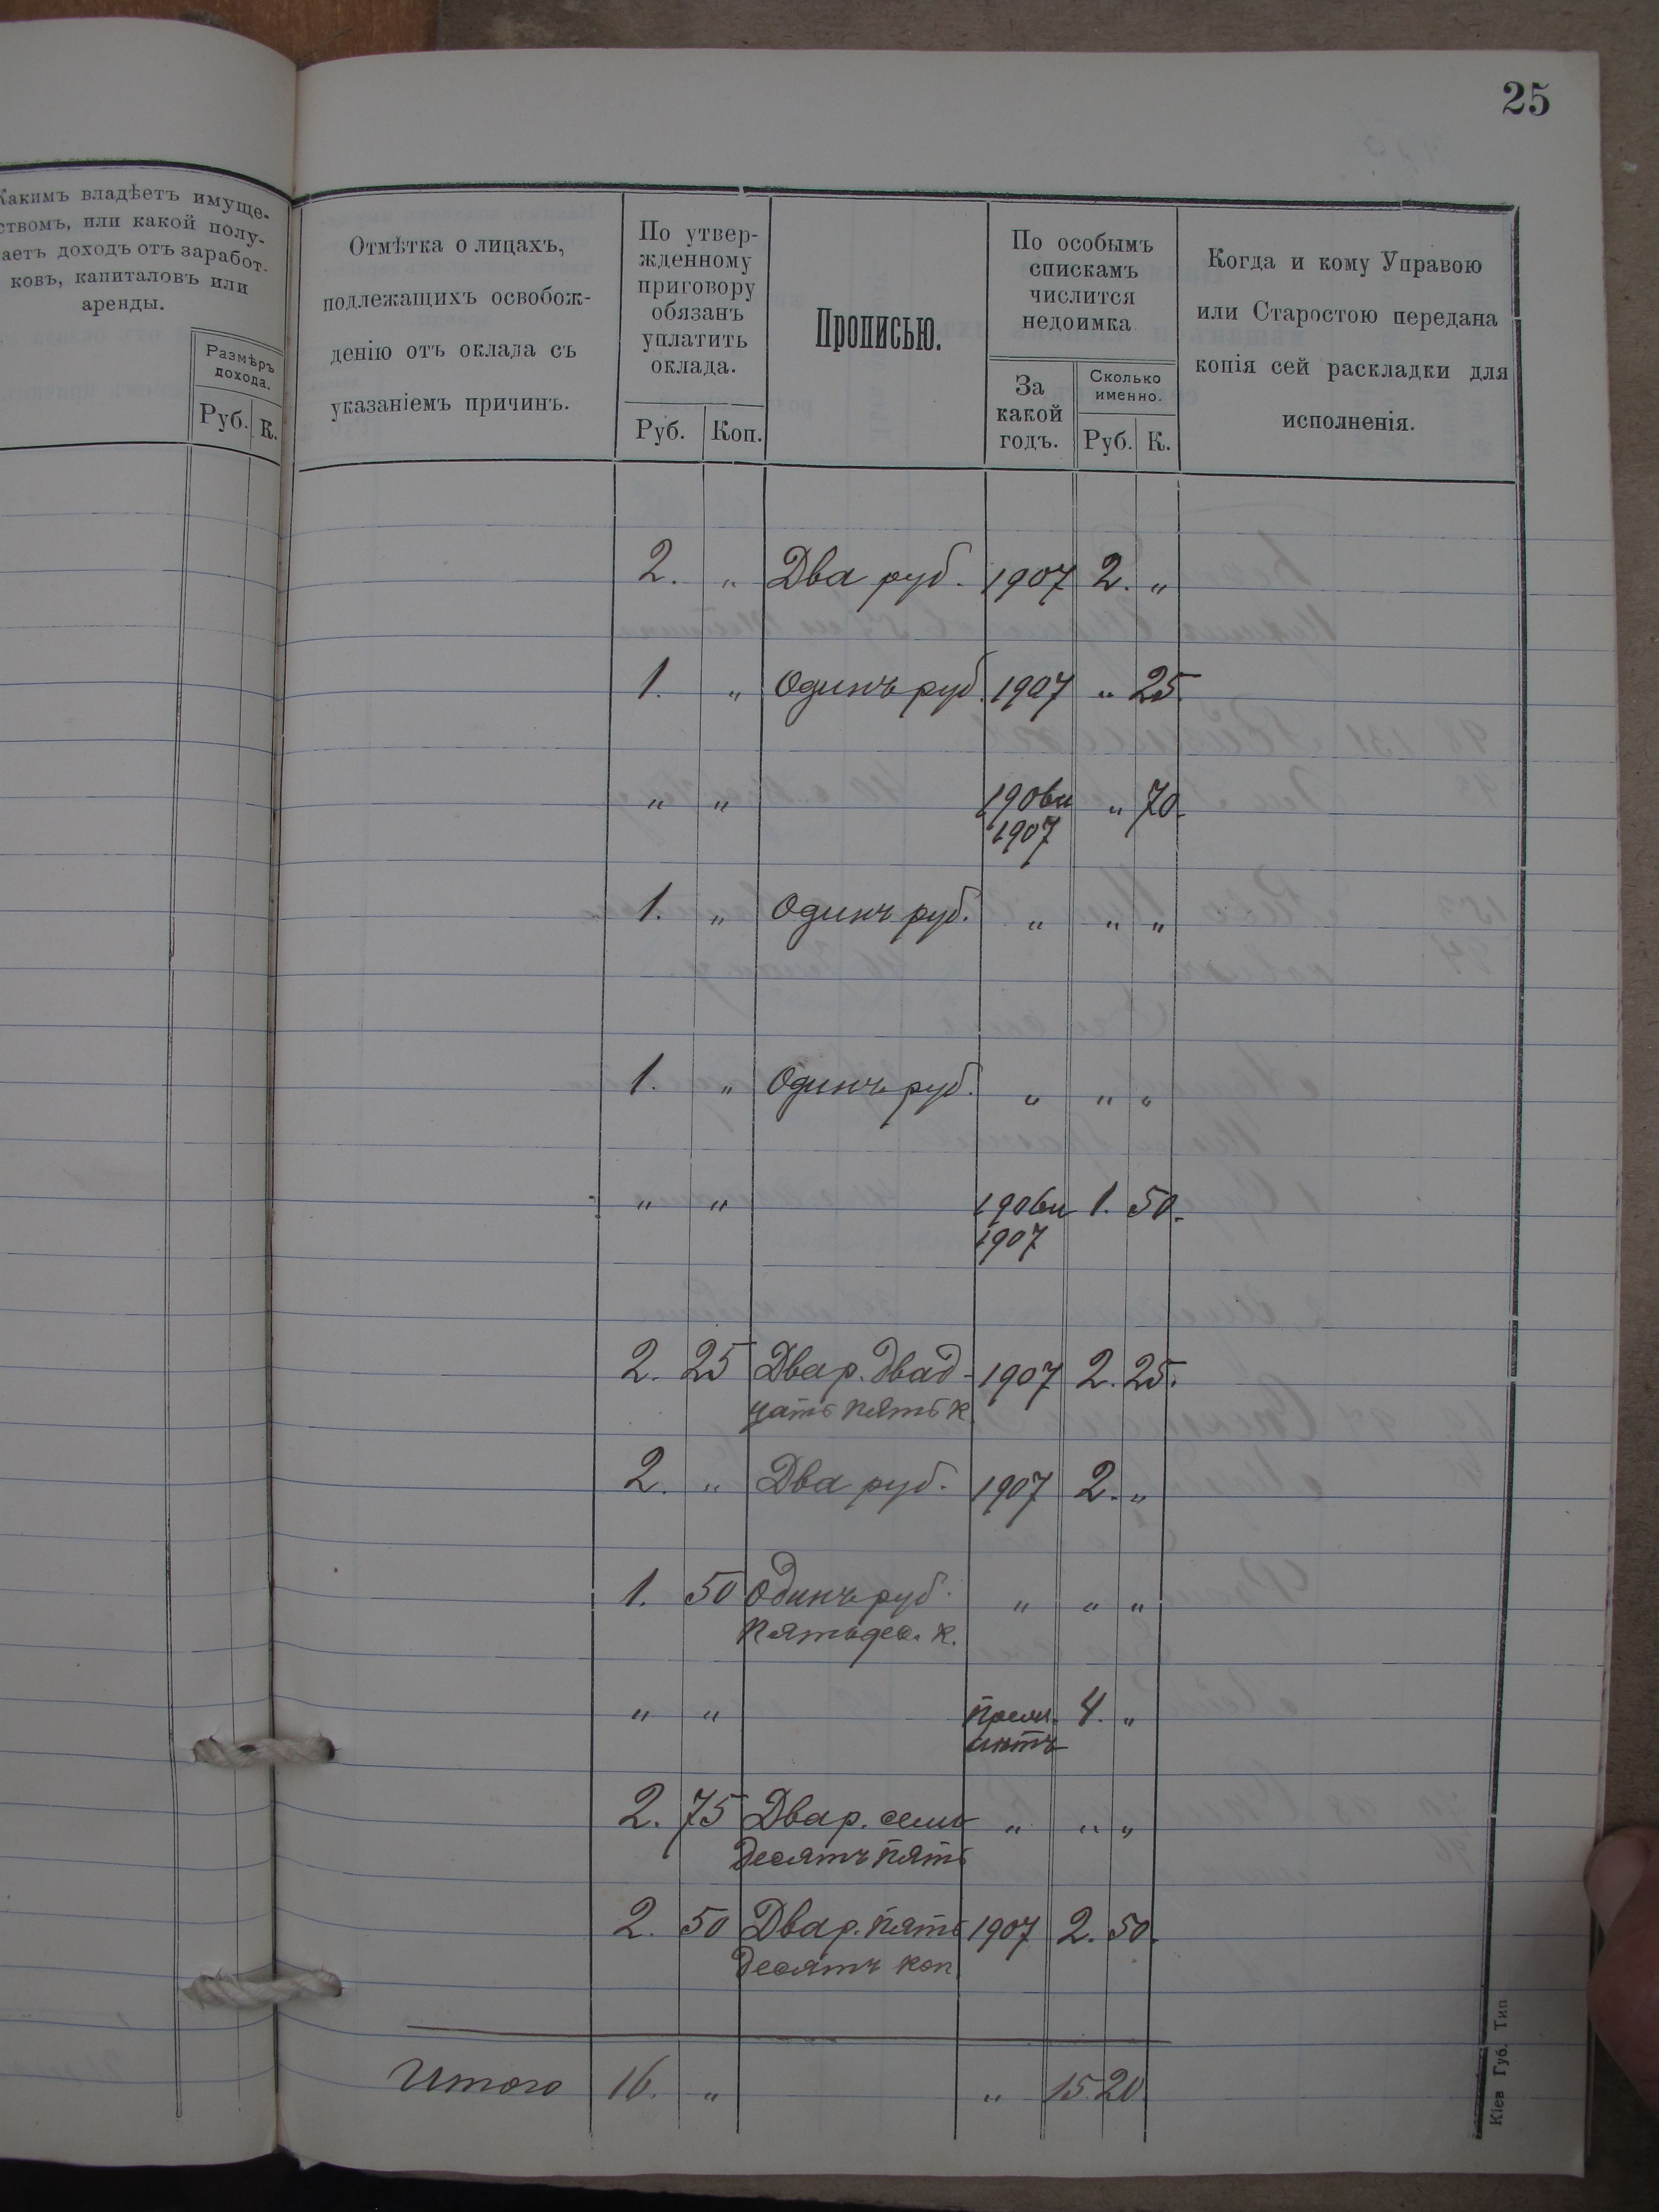 25
Какимъ владѣетъ имуще-
ствомъ, или какой полу-
чаетъ доходъ отъ заработ-
ковъ, капиталовъ или
аренды.
Размѣръ
дохода.
Руб. К.
Отмѣтка о лицахъ,
подлежащихъ освобож-
денію отъ оклада съ
указаніемъ причинъ.
По утвер-
жденному
приговору
обязанъ
уплатить
оклада.
Руб. Коп.
Прописью.
По особымъ
спискамъ
числится
недоимка
За
какой
годъ.
Сколько
именно.
Руб. К.
Когда и кому Управою
или Старостою передана
копія сей раскладки для
исполненія.
2. „ Два руб. 1907 2. „
1. „ Одинъ руб. 1907 „ 25.
„ „ 1906 и „ 70.
1907
1. „ Одинъ руб. „ „ „
1. „ Одинъ руб. „ „ „
„ „ 1906 и 1. 50.
1907
2. 25 Два р. двад- 1907 2. 25.
цать пять к.
2. „ Два руб. 1907 2. „
1. 50 Одинъ руб. „ „ „
пятьдес. к.
„ „ 4. „
2. 75 Два р. семь „ „ „
десятъ пять
2. 50 Два р. пять 1907 2. 50.
десятъ коп.
Итого 16. „ „ 15. 20.
Кіев Губ. Тип